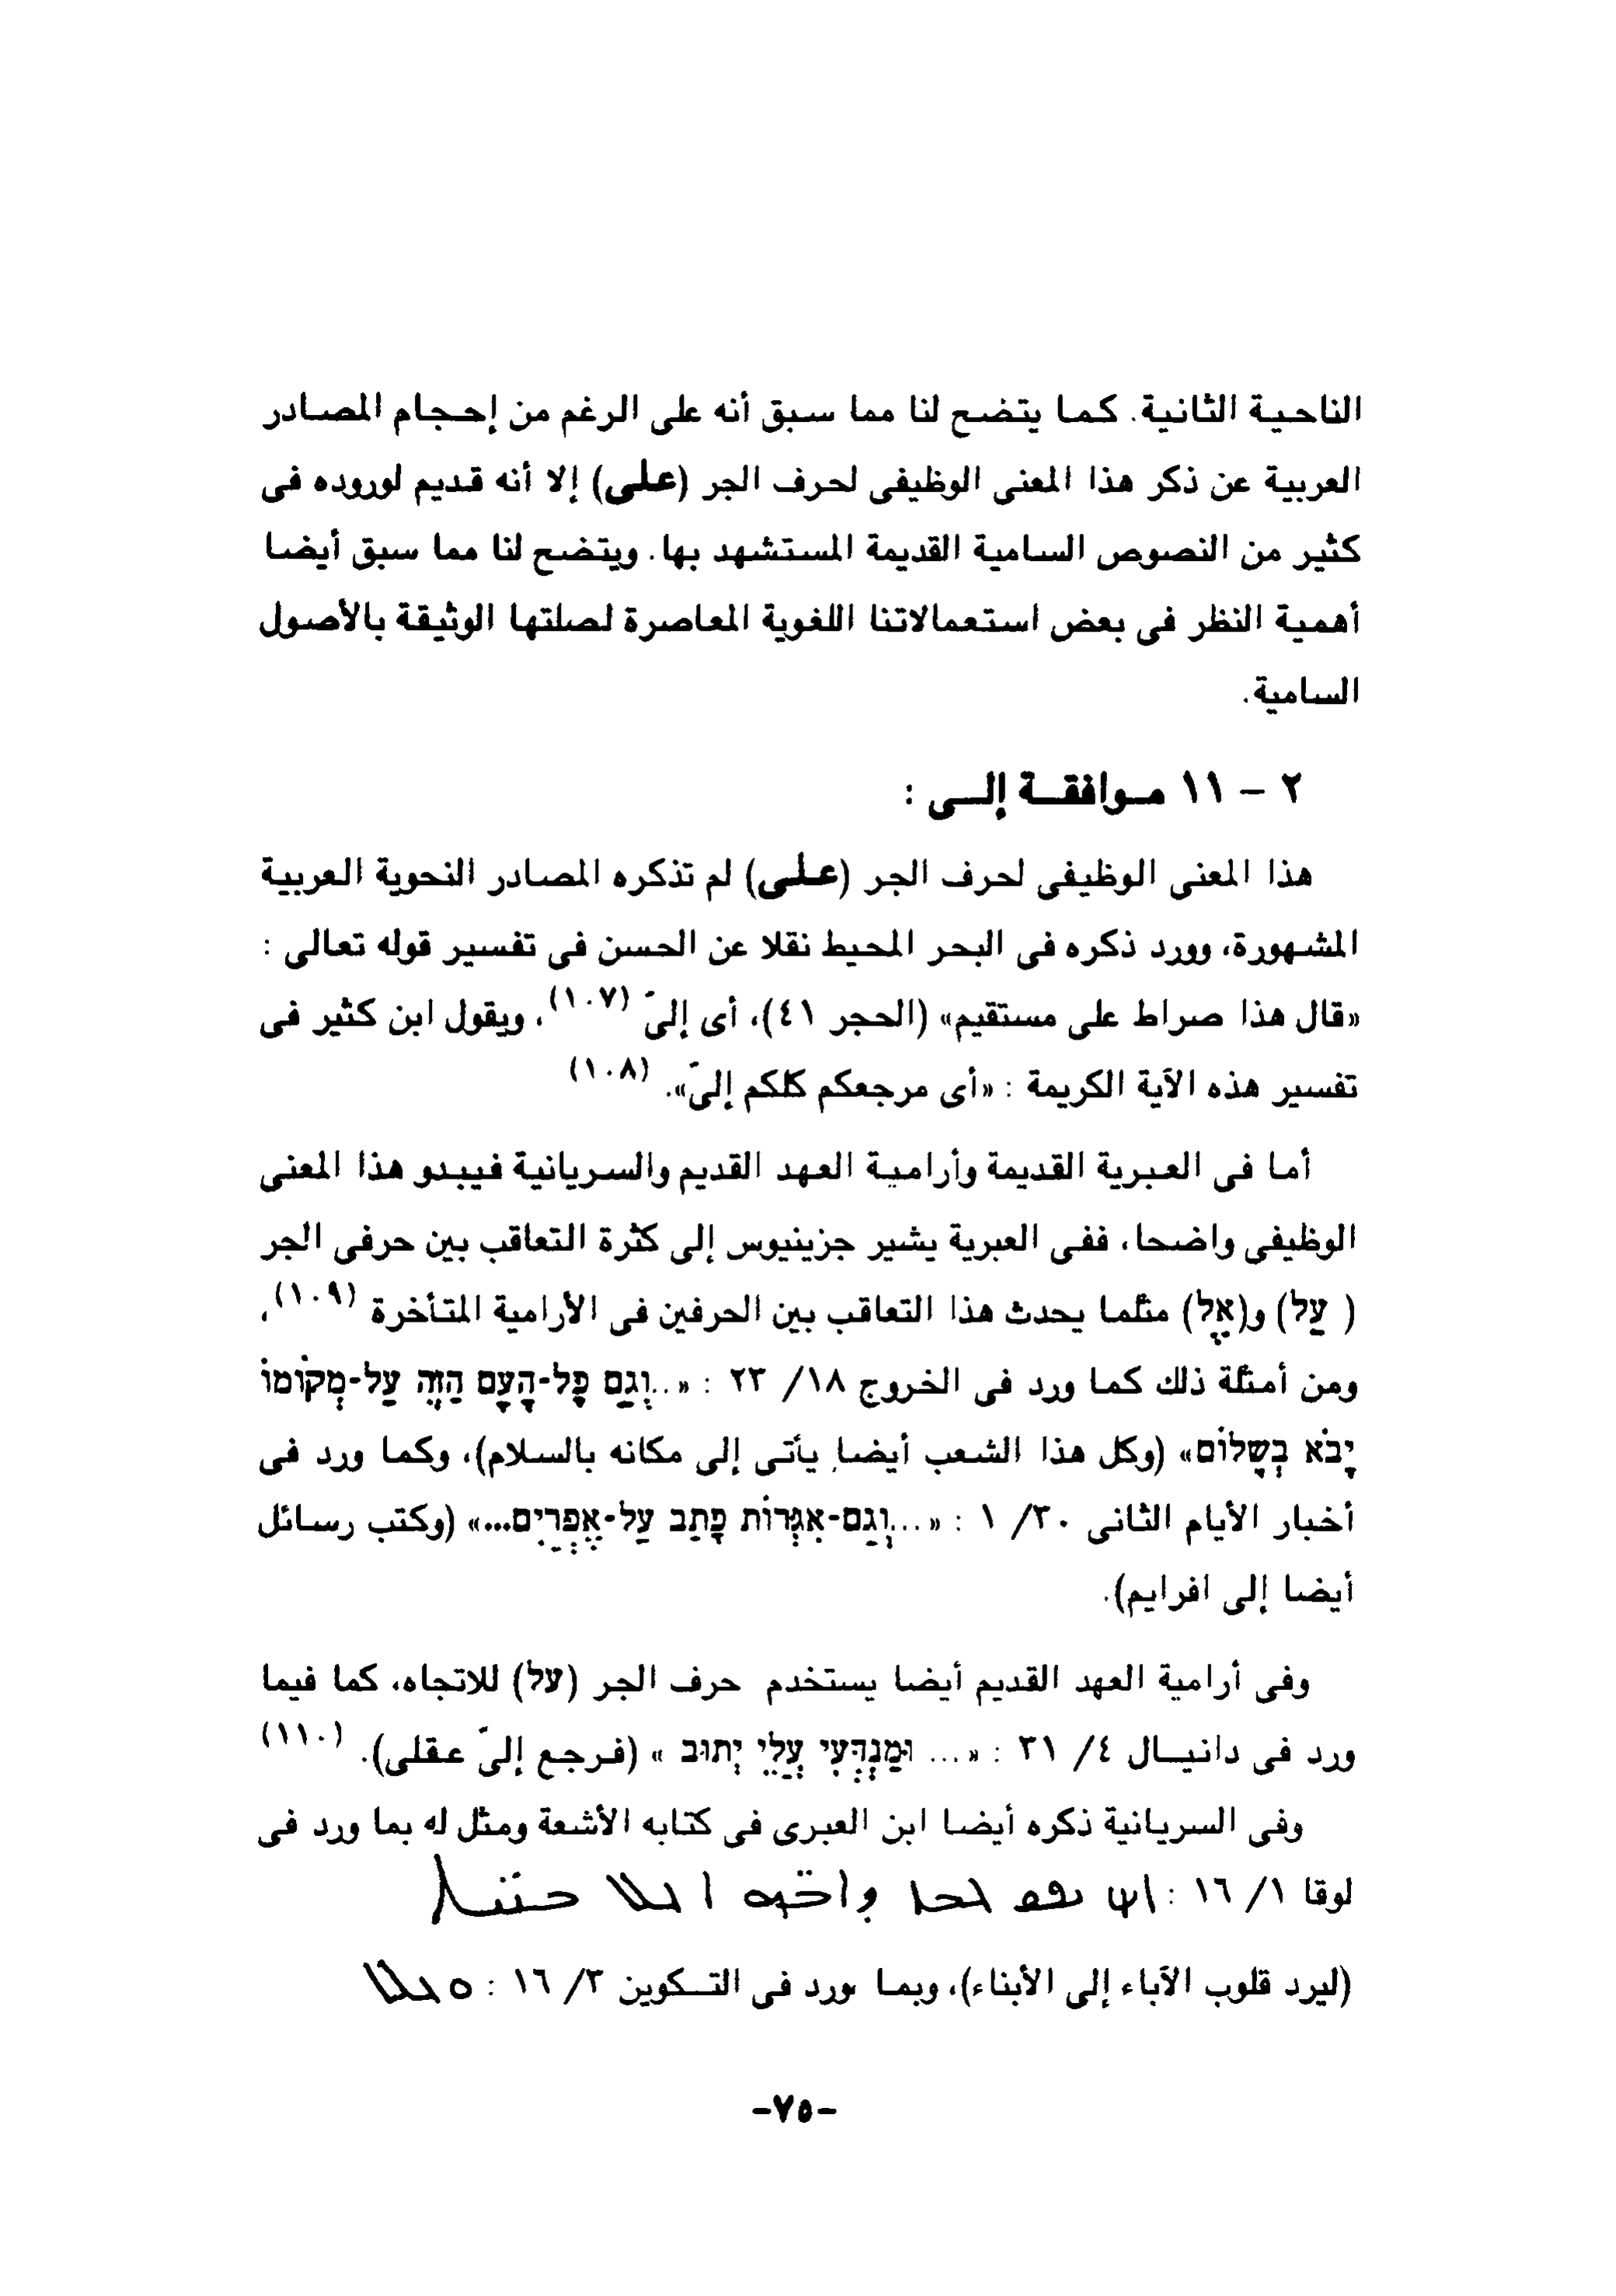 الناحية الثانية. كما يتضح لنا مما سبق أنه على الرغم من إحجام المصادر
العربية عن ذكر هذا المعنى الوظيفى لحرف الجر (على) إلا أنه قديم لوروده فى
كثير من النصوص السامية القديمة المستشهد بها. ويتضح لنا مما سبق أيضا
أهمية النظر فى بعض استعمالاتنا اللغوية المعاصرة لصلتها الوثيقة بالأصول
السامية.
٢ - ١١ موافقة إلى :
هذا المعنى الوظيفى لحرف الجر (على) لم تذكره المصادر النحوية العربية
المشهورة، وورد ذكره فى البحر المحيط نقلا عن الحسن فى تفسير قوله تعالى :
«قال هذا صراط على مستقيم» (الحجر ٤١)، أى إلىّ (١٠٧)، ويقول ابن كثير فى
تفسير هذه الآية الكريمة : «أى مرجعكم كلكم إلىّ». (١٠٨)
أما فى العبرية القديمة وأرامية العهد القديم والسريانية فيبدو هذا المعنى
الوظيفى واضحا، ففى العبرية يشير جزينيوس إلى كثرة التعاقب بين حرفى الجر
( עַל) و(אֶל) مثلما يحدث هذا التعاقب بين الحرفين فى الأرامية المتأخرة (١٠٩)،
ومن أمثلة ذلك كما ورد فى الخروج ١٨/ ٢٣ : «..וְגַם כָּל-הָעָם הַזֶּה עַל-מְקוֹמוֹ
יָבֹא בְשָׁלוֹם» (وكل هذا الشعب أيضا يأتى إلى مكانه بالسلام)، وكما ورد فى
أخبار الأيام الثانى ٣٠/ ١ : «...וְגַם-אִגְּרוֹת כָּתַב עַל-אֶפְרַיִם...» (وكتب رسائل
أيضا إلى افرايم).
وفى أرامية العهد القديم أيضا يستخدم حرف الجر (על) للاتجاه، كما فيما
ورد فى دانيال ٤/ ٣١ : «... וּמַנְדְּעִי עֲלַי יְתוּב » (فرجع إلىّ عقلى). (١١٠)
وفى السريانية ذكره أيضا ابن العبرى فى كتابه الأشعة ومثل له بما ورد فى
لوقا ١/ ١٦ :
(ليرد قلوب الآباء إلى الأبناء)، وبما ورد فى التكوين ٣/ ١٦ : ܘܥܠ
-٧٥-